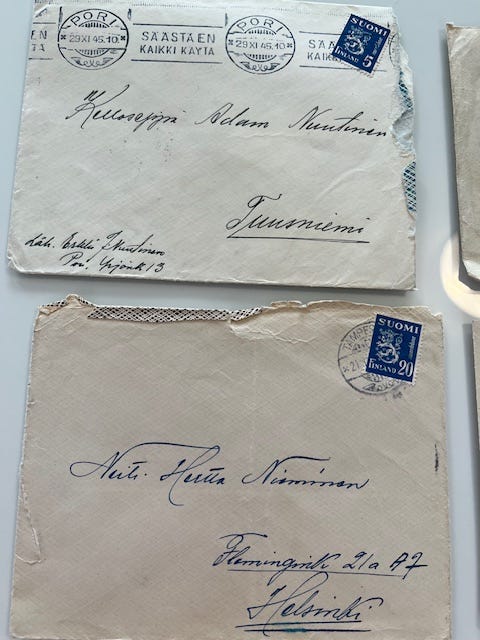 PORI
29.XI.45.10
SÄÄSTÄEN
KAIKKI KÄYTÄ
PORI
29.XI.45.10
SÄÄ
KAIK
SUOMI
5
FINLAND
Kelloseppä Adam Nuutinen
Tuusniemi
Läh. Erkki J. Nuutinen
Pori.
13
SUOMI
FINLAND 20
TAMPE
21
Neiti. Hertta Nieminen
Flemingink 21a A7
Helsinki